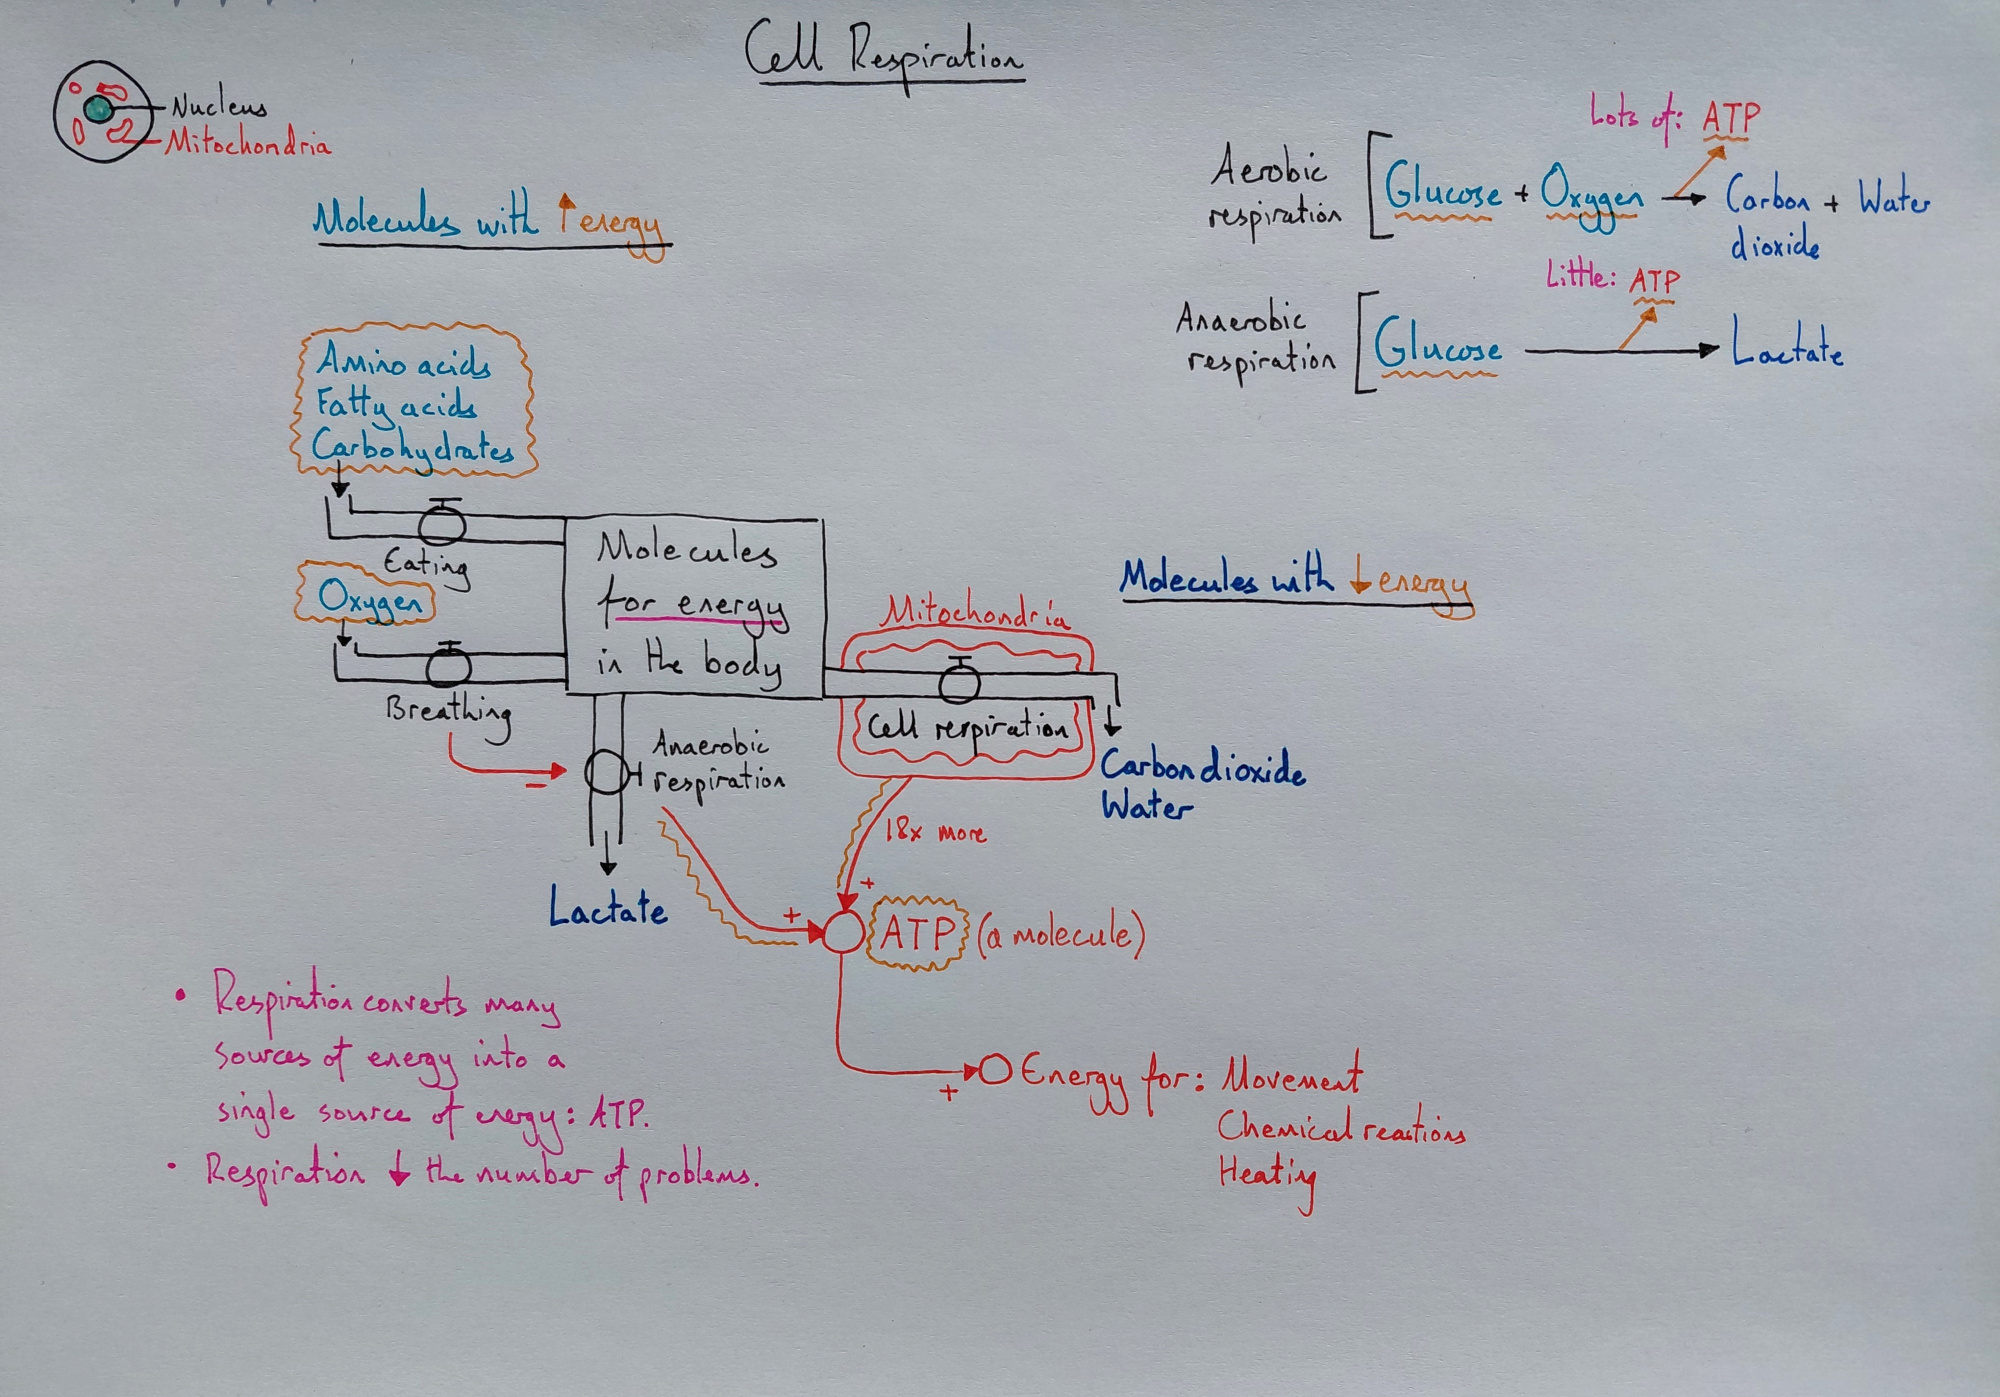 Cell Respiration
Nucleus
Mitochondria
Molecules with ↑ energy
Lots of: ATP
Aerobic
respiration
Glucose + Oxygen → Carbon + Water
dioxide
Little: ATP
Anaerobic
respiration
Glucose → Lactate
Amino acids
Fatty acids
Carbohydrates
Eating
Oxygen
Breathing
Molecules
for energy
in the body
Molecules with ↓ energy
Mitochondria
Cell respiration
Carbon dioxide
Water
Anaerobic
respiration
−
Lactate
18x more
+
+
ATP (a molecule)
+
Energy for: Movement
Chemical reactions
Heating
• Respiration converts many
sources of energy into a
single source of energy: ATP.
• Respiration ↓ the number of problems.